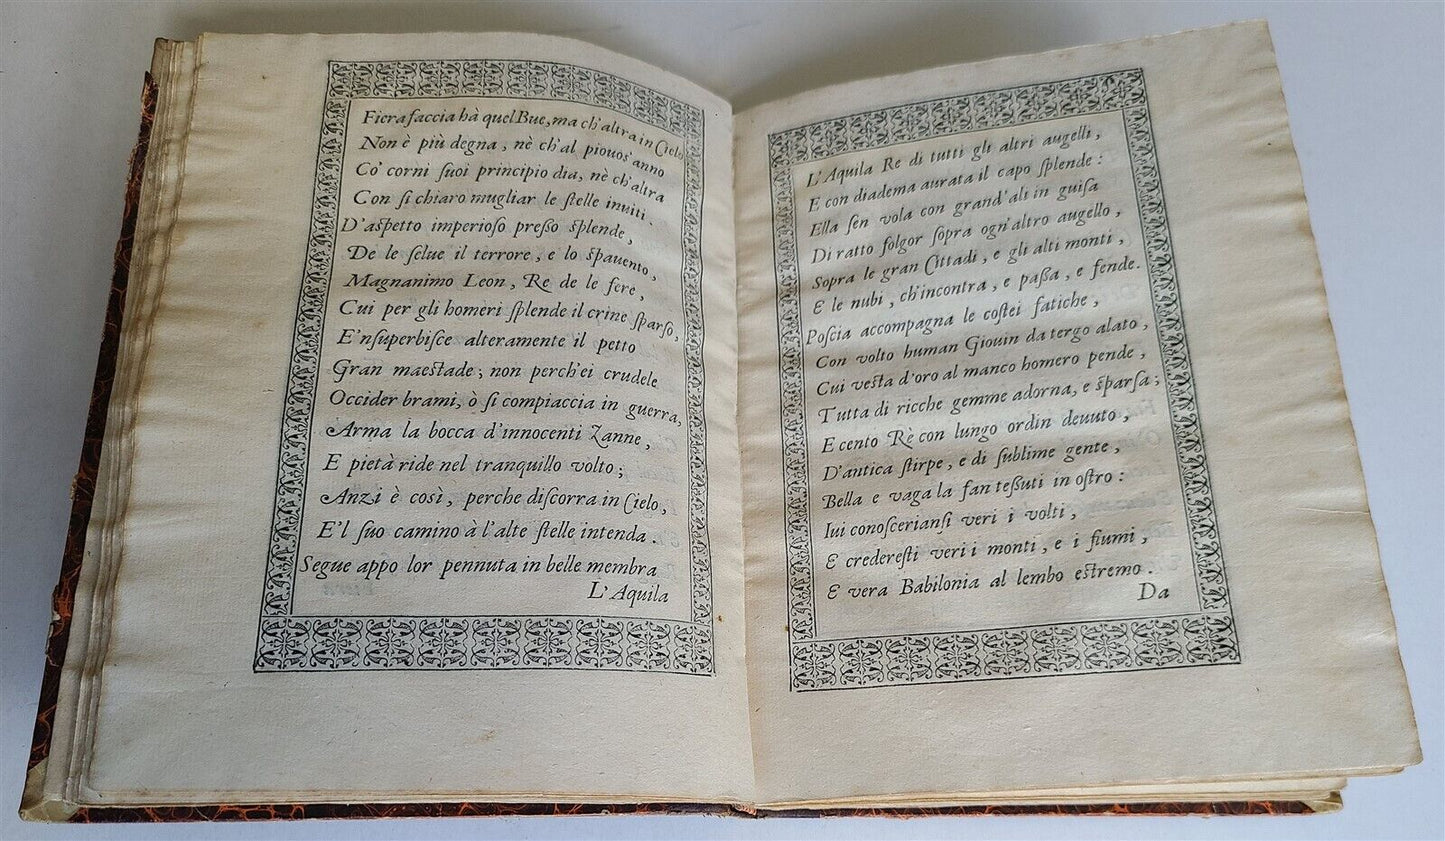 Fiera faccia hà quel Bue, ma ch'altra in Cielo
Non è più degna, nè ch'al piouos'anno
Co' corni ſuoi principio dia, nè ch'altra
Con ſi chiaro mugliar le ſtelle inuiti.
D'aſpetto imperioſo preſſo ſplende,
De le ſelue il terrore, e lo ſpauento,
Magnanimo Leon, Re de le fere,
Cui per gli homeri ſplende il crine ſparſo,
E'nſuperbiſce alteramente il petto
Gran maeſtade; non perch'ei crudele
Occider brami, ò ſi compiaccia in guerra,
Arma la bocca d'innocenti Zanne,
E pietà ride nel tranquillo volto;
Anzi è così, perche diſcorra in Cielo,
E'l ſuo camino à l'alte ſtelle intenda.
Segue appo lor pennuta in belle membra
L'Aquila
L'Aquila Re di tutti gli altri augelli,
E con diadema aurata il capo ſplende:
Ella ſen vola con grand'ali in guiſa
Di ratto folgor ſopra ogn'altro augello,
Sopra le gran Cittadi, e gli alti monti,
E le nubi, ch'incontra, e paſſa, e fende.
Poſcia accompagna le coſtei fatiche,
Con volto human Giouin da tergo alato,
Cui veſta d'oro al manco homero pende,
Tutta di ricche gemme adorna, e ſparſa;
E cento Rè con lungo ordin deuuto,
D'antica ſtirpe, e di ſublime gente,
Bella e vaga la fan teſſuti in oſtro:
Iui conoſcerianſi veri i volti,
E credereſti veri i monti, e i fiumi,
E vera Babilonia al lembo eſtremo.
Da